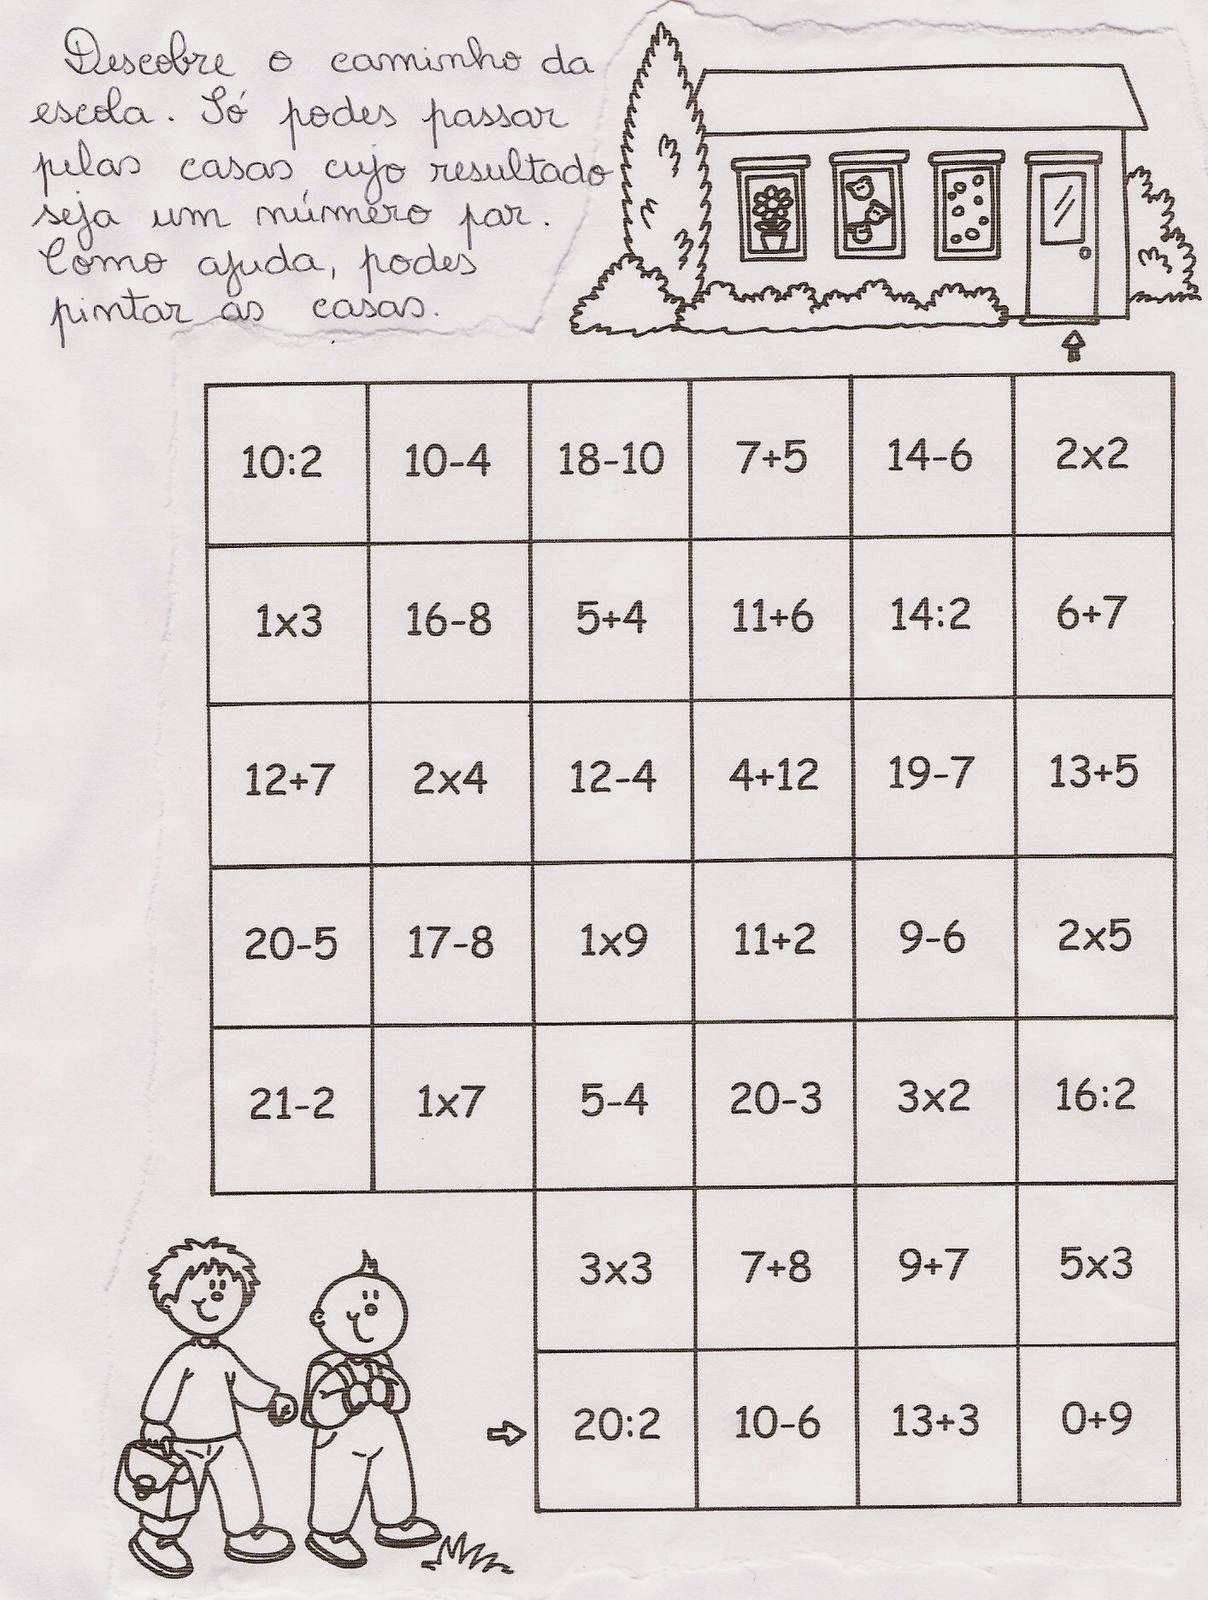 Descobre o caminho da
escola. Só podes passar
pelas casas cujo resultado
seja um número par.
Como ajuda, podes
pintar as casas.
10:2 10-4 18-10 7+5 14-6 2x2
1x3 16-8 5+4 11+6 14:2 6+7
12+7 2x4 12-4 4+12 19-7 13+5
20-5 17-8 1x9 11+2 9-6 2x5
21-2 1x7 5-4 20-3 3x2 16:2
3x3 7+8 9+7 5x3
20:2 10-6 13+3 0+9